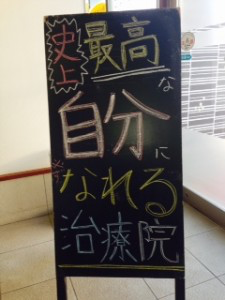 史上
最高な
自分に
なれる
治療院